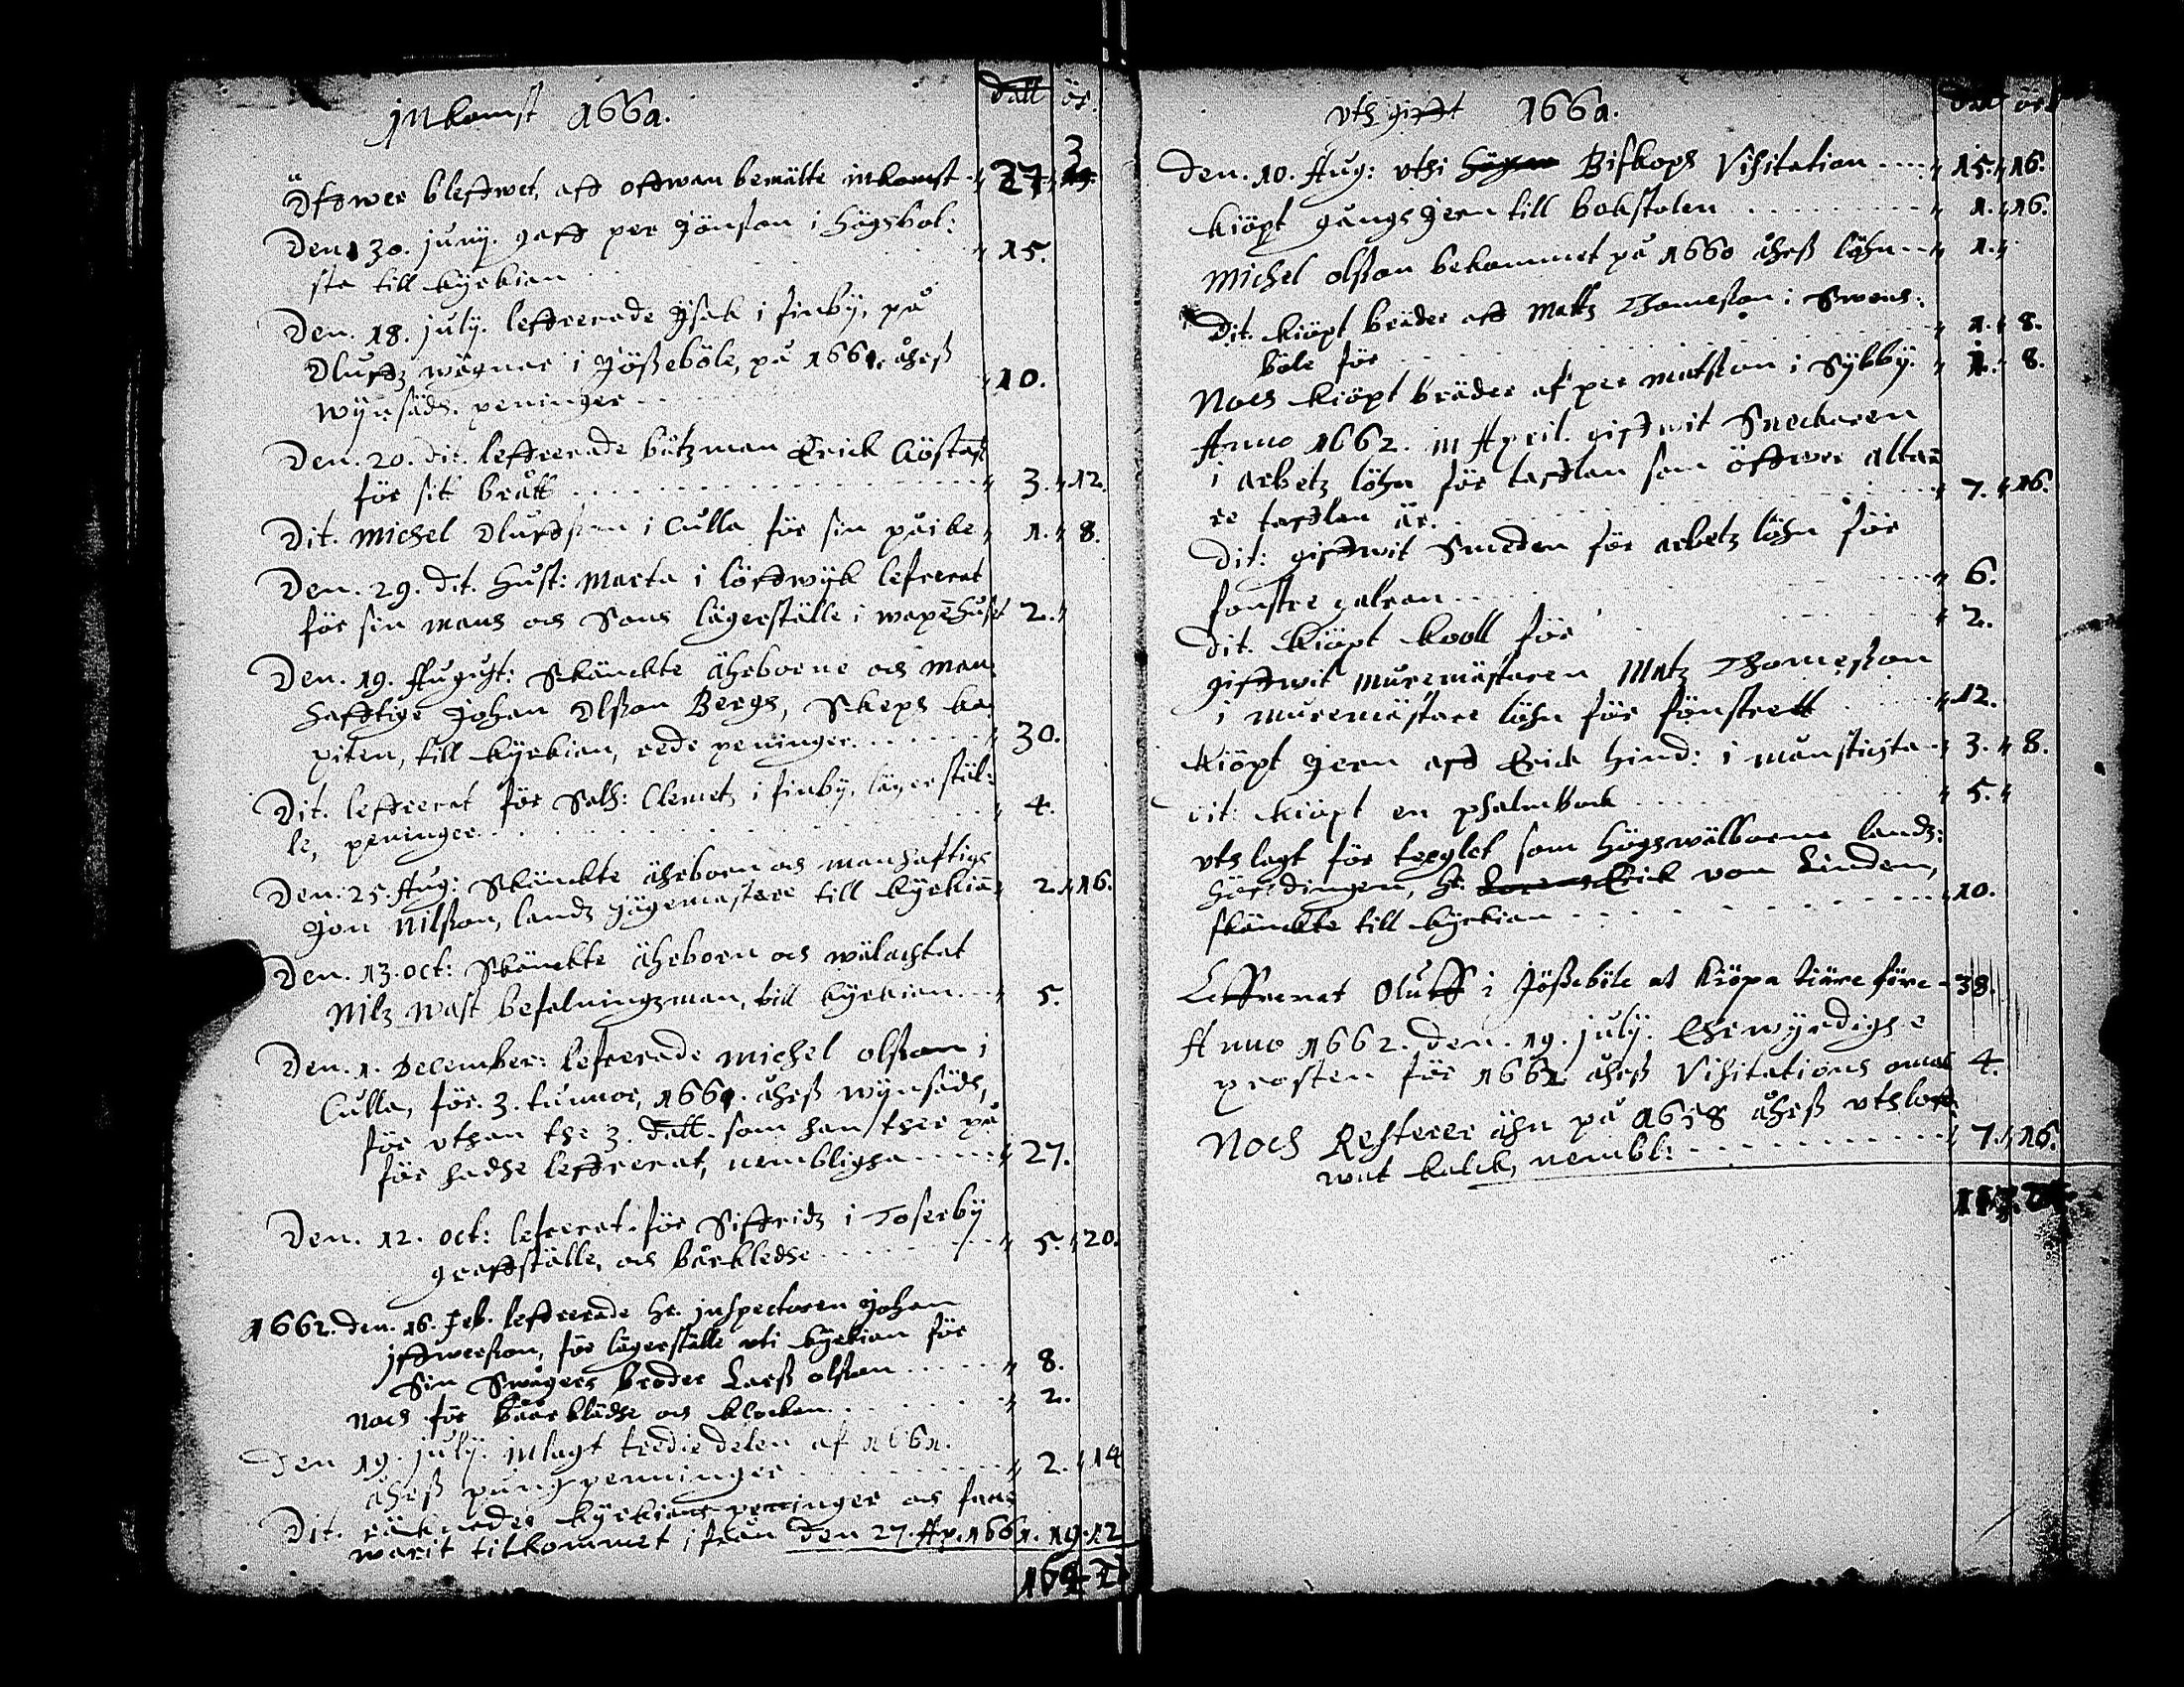 Inkomst 1661.
Dall ör.
Öfwer bleffwet, aff offwan bemälte inkomst 27 3
Den 30. junij. gaff per Jönson i Högsbol:
sta till kyrkian 15.
Den. 18. julij. leffrerade Isak i finby, på
Oluffz wägnar i Jößeböle, på 1661. åhrß
wijnsädz. peninger 10.
Den. 20. dit. leffrerade båtzman Erick
för sit brått 3. 12.
Dit. Michel Oluffson i Culla för sin 1. 8.
Den. 29. dit. Hust: Marta i löffwijk lefrerat
för sin mans och Sons lägerställe i wapēhuset 2.
Den. 19. August: Skänckte ährborne och man
hafftige Johan Olßon Bergh, Skeps ka
piten, till kyrkian, rede peninger 30.
Dit. leffrerat för Salh: Clemetz i finby, lägerstäl:
le, peninger 4.
Den. 25. Aug: Skänckte ährboren och manhaftige
Jon Nilßon, landz Jägemästare till kyrkiā 2. 16.
Den. 13. oct: Skänckte ährboren och wälachtat
Nilz Wast befalningzman, till kyrkian 5.
Den. 1. December: lefrerade Michel olßon i
Culla, för. 3. tunnor, 1661. åhrß wijnsädh,
för uthan the 3. Dall. som han ther på
för hadhe leffrerat, nembligha 27.
Den. 12. oct: lefrerat för Siffridz i Toserby
graffställe, och bårkledhe 5. 20.
1662. den. 16. Feb. leffrerade Hr. Inspectoren Johan
Iffwerßon, för lägerställe uti kyrkian för
Sin Swågers broder Larß olßon 8.
noch för båårklädhe och klockan 2.
Den 19. julij. inlagt tredie delen af 1661.
åhrß pungpenninger 2. 14
Dit. räknades kyrkians peninger och fans
warit tilkommet ifrån den 27. Ap. 1661. 19. 12
uthgifft 1661.
Dall ör
Den. 10. Aug: uthi Biskops Visitation 15. 16.
kiöpt gångejern till bokstolen 1. 16.
Michel olßon bekommet på 1660 åhrß löhn 1.
Dit. kiöpt bräder aff Mattz Thomeßon i Swens:
böle för 1. 8.
Noch kiöpt bräder af per matßon i Sybby. 1. 8.
Anno 1662. in April. giffwit Sneckaren
i arbetz löhn för tafflan som öffwer altā
re tafflan är. 7. 16.
Dit: giffwit Smeden för arbetz löhn för
fönstre galran 6.
dit. kiöpt kooll för 2.
giffwit muremästaren Matz Thomeßon
i muremästare löhn för fönstrett 12.
kiöpt Jern aff Erick Hind: i 3. 8.
dit: kiöpt en psalmbok 5.
uthlagt för teglet som Högwälborne landz:
höfdingen, Hr. Erick von Linden,
skänckte till kyrkian 10.
Leffrerat Oluff i Jößeböle at kiöpa tiäre före 38.
Anno 1662. den. 19. julij. Ehrwyrdighe
prosten för 1662 åhrß Visitations omak 4.
Noch Resterer ähn på 1658 åhrß uthloff
wat kalck, nembl: 7. 16.